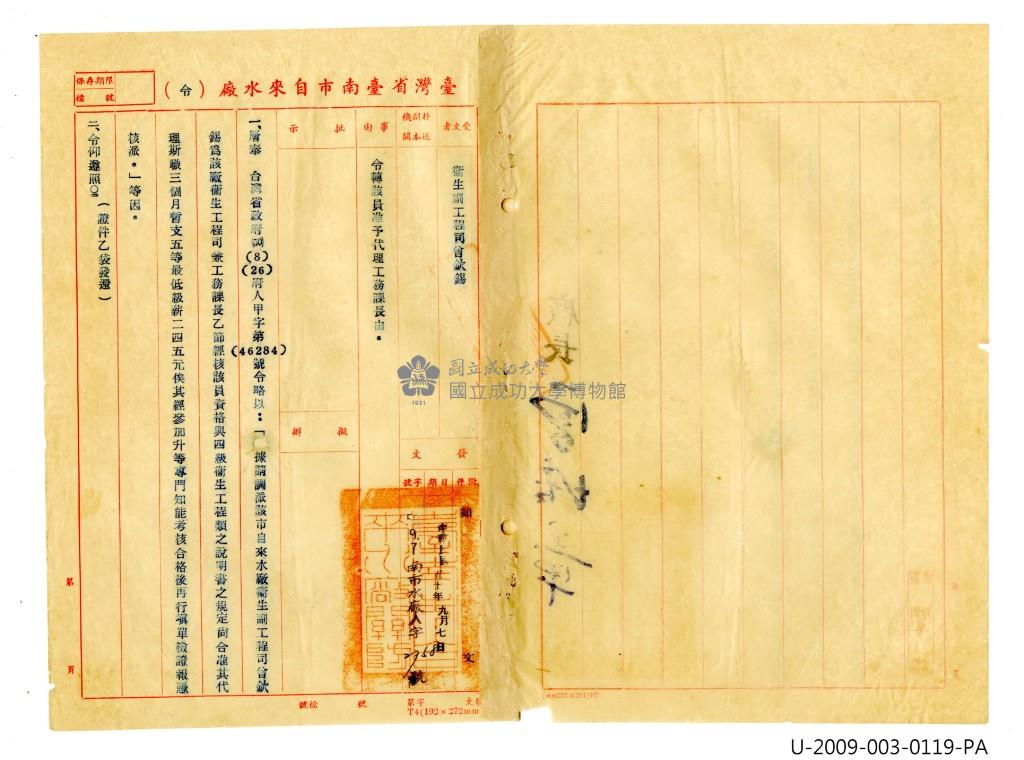 臺灣省臺南市自來水廠（令）
保存期限
檔 號
受文者
衛生副工程司曾欽錫
抄送
副本
機關
事由
令轉該員准予代理工務課長由。
批示
擬辦
發文
附件
日期
字號
如文
中華民國 年九月七日
9.7南市水廠人字
號
一、層奉 台灣省政府 (8)(26)府人甲字第(46284)號令略以：「據請調派該市自來水廠衛生副工程司曾欽
錫為該廠衛生工程司兼工務課長乙節經核該員資格與四級衛生工程類之說明書之規定尚合准其代
理斯職三個月暫支五等最低級薪二四五元俟其經參加升等專門知能考核合格後再行填單檢證報憑
核派。」等因。
二、令仰遵照。（證件乙袋發還）
第 頁
號檔 號
第 字 文
T4(192×272mm
廠長
1931
國立成功大學
國立成功大學博物館
U-2009-003-0119-PA